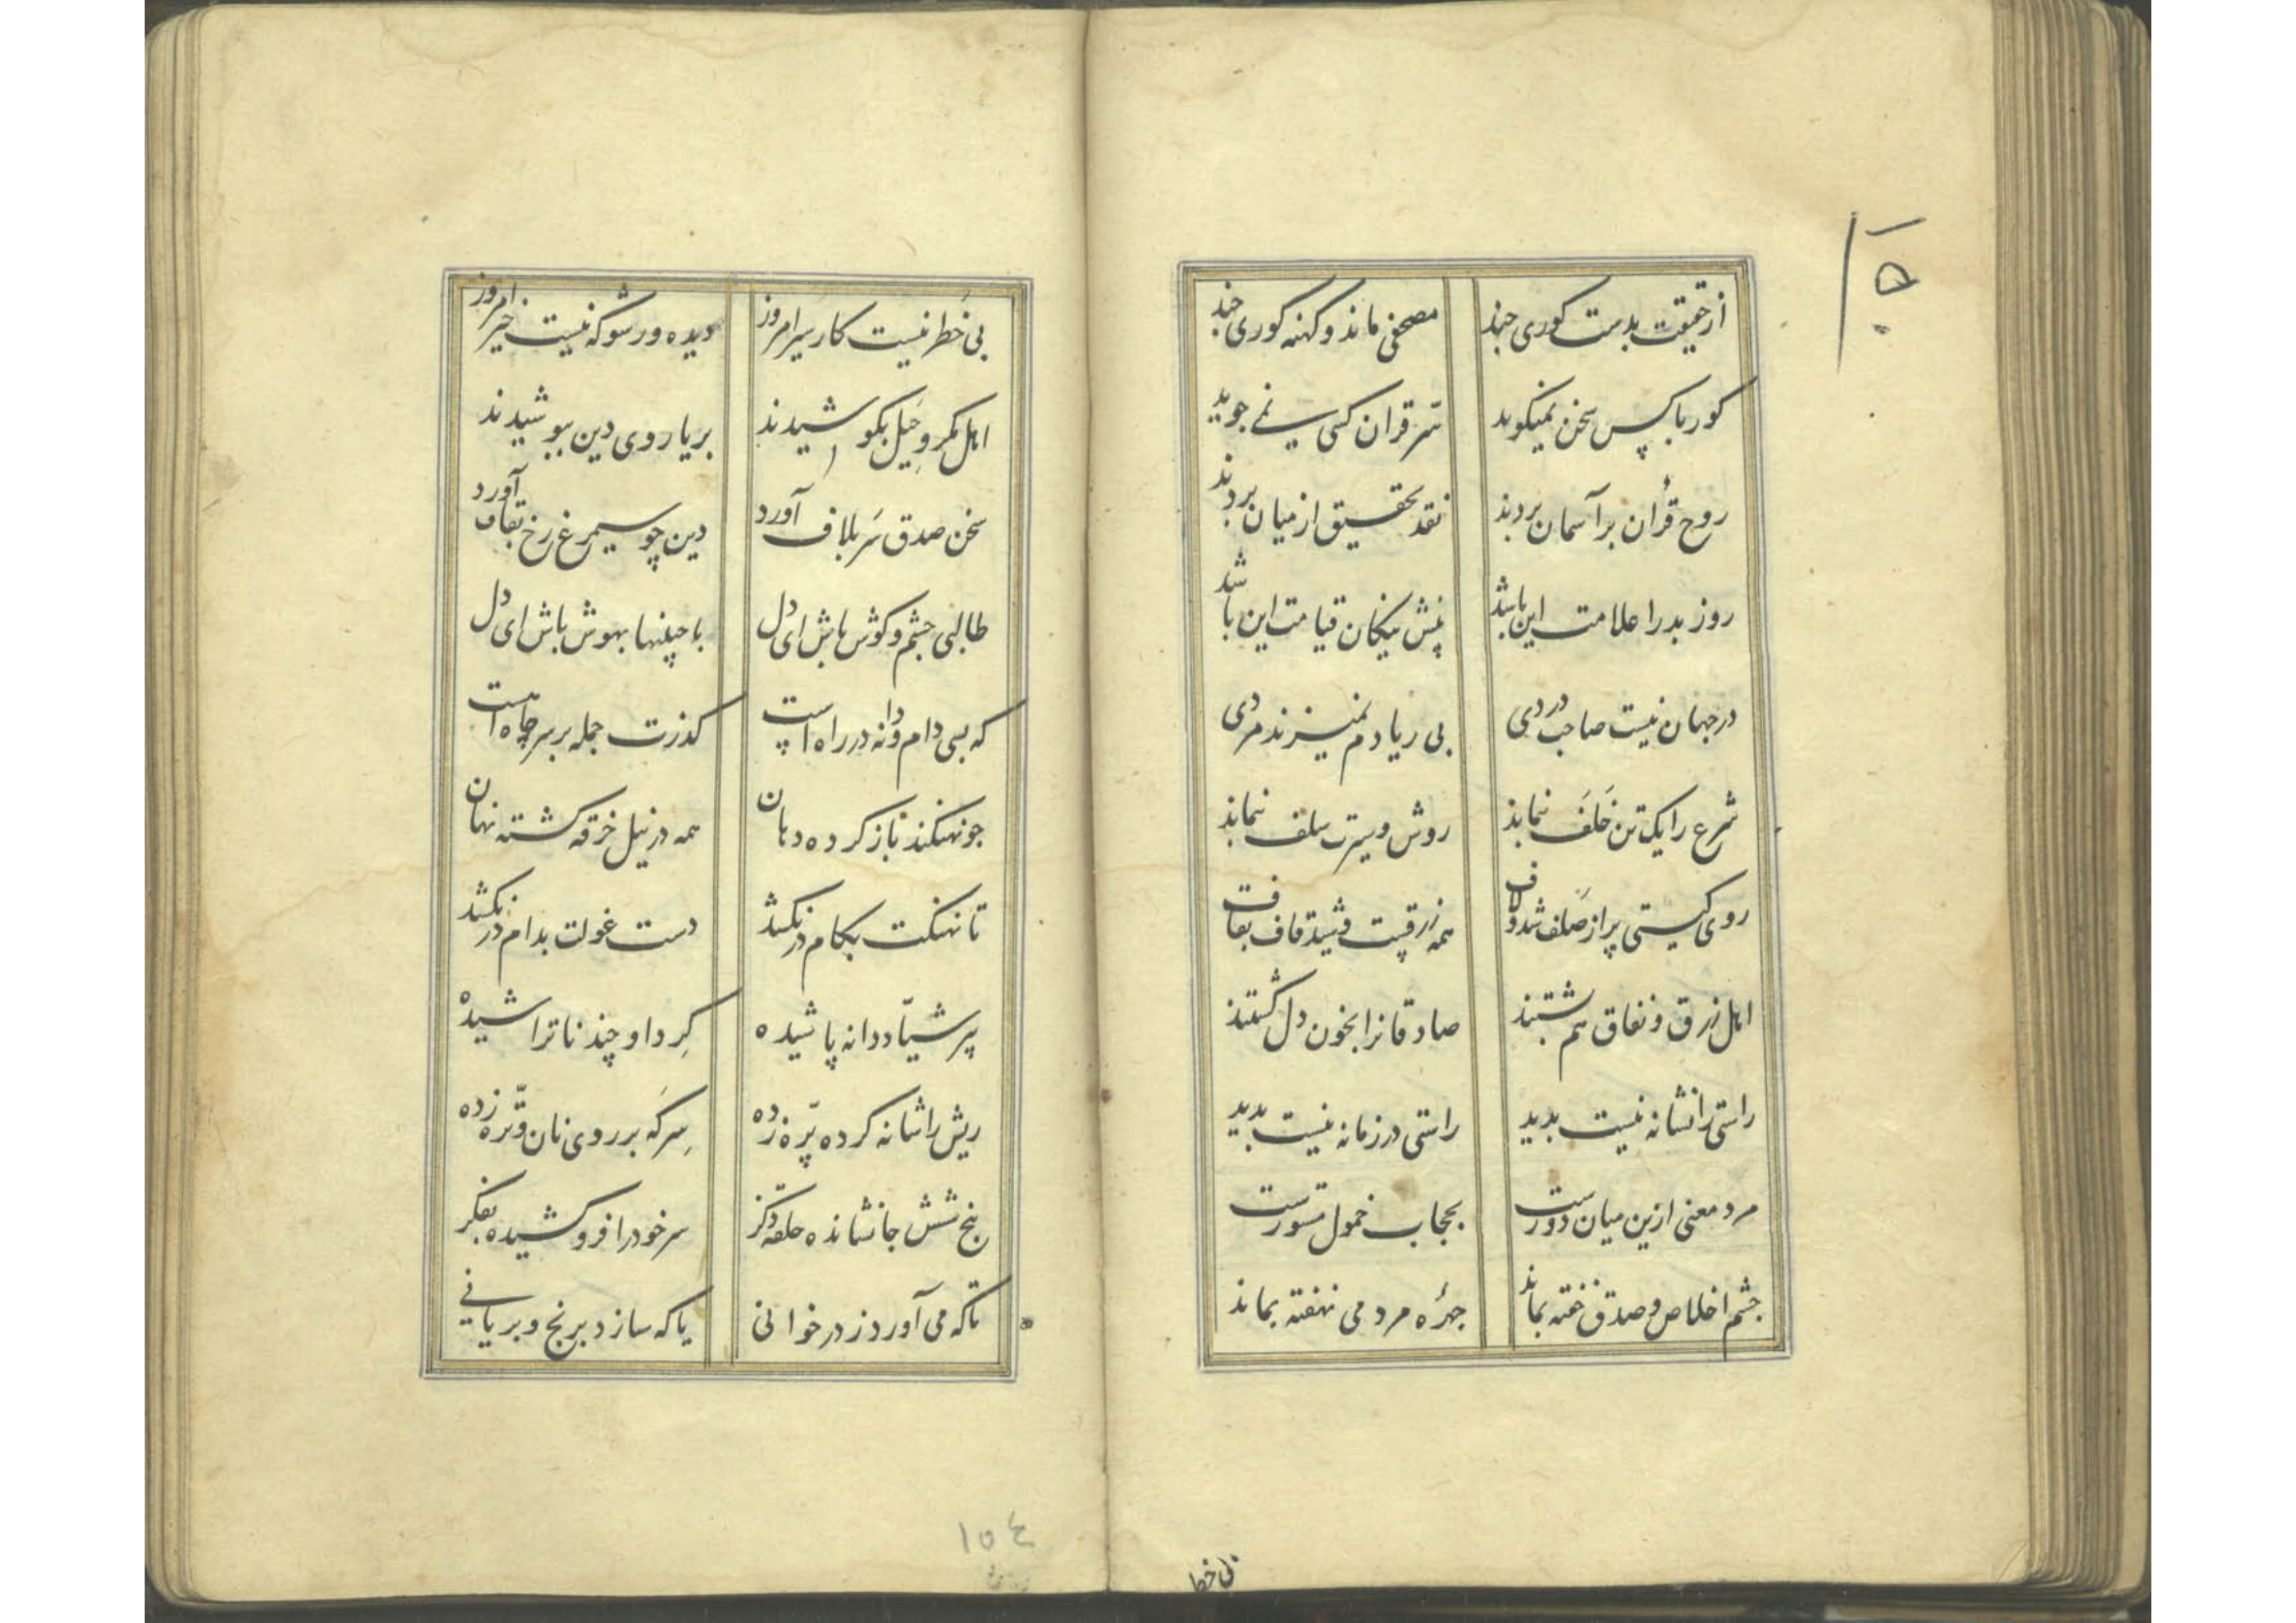 از حقیقت بدست کوری چند مصحفی ماند و کهنه کوری چند
کور باکس سخن نمیکوید سّر قران کسی نمے جوید
روح قرآن بر آسمان بردند نقد تحقیق از میان بردند
روز بد را علامت این باشد پیش نیکان قیامت این باشد
در جهان نیست صاحب دردی بی ریا دم نمیزند مردی
شرع را یک تن خَلَف نماند روش و سیرت سلف نماند
روی کیتی پر از صَلف شد و لاف همه زرقیست و شید قاف بقاف
اهل زرق و نفاق هم پشتند صادقانرا بخون دل کشتند
راستی را نشانه نیست بدید راستی در زمانه نیست بدید
مرد معنی ازین میان دورست بحجاب خمول مستورست
چشم اخلاص و صدق خفته بماند چهرهٔ مردمی نهفته بماند
بی خَطر نیست کار سیر امروز دیده ور شو که نیست خیر امروز
اهل مکر و حِیَل بکوشیدند بریا روی دین بپوشیدند
سخن صدق سَر بلاف آورد دین چو سیمرغ رخ بقاف آورد
طالبی چشم و کوش باش ای دل با چنینها بهوش باش ای دل
که بسی دام و دانه در راه است کذرت جمله بر سر چاه است
چو نهنکند باز کرده دهان همه در نیل خرقه کشته نهان
تا نهنکت بکام در نکشد دست غولت بدام در نکشد
پیر شیّاد دانه پاشیده کِرد او چند ناتراشیده
ریش را شانه کرده پرّه زده سِرکَه بر روی نان و ترّه زده
پنج شش جا نشانده حلقهٔ ذکر سر خود را فرو کشیده بفکر
تا که می آورد ز در خوانی یا که سازد برنج و بریانے
۱۵٤
بی خطر